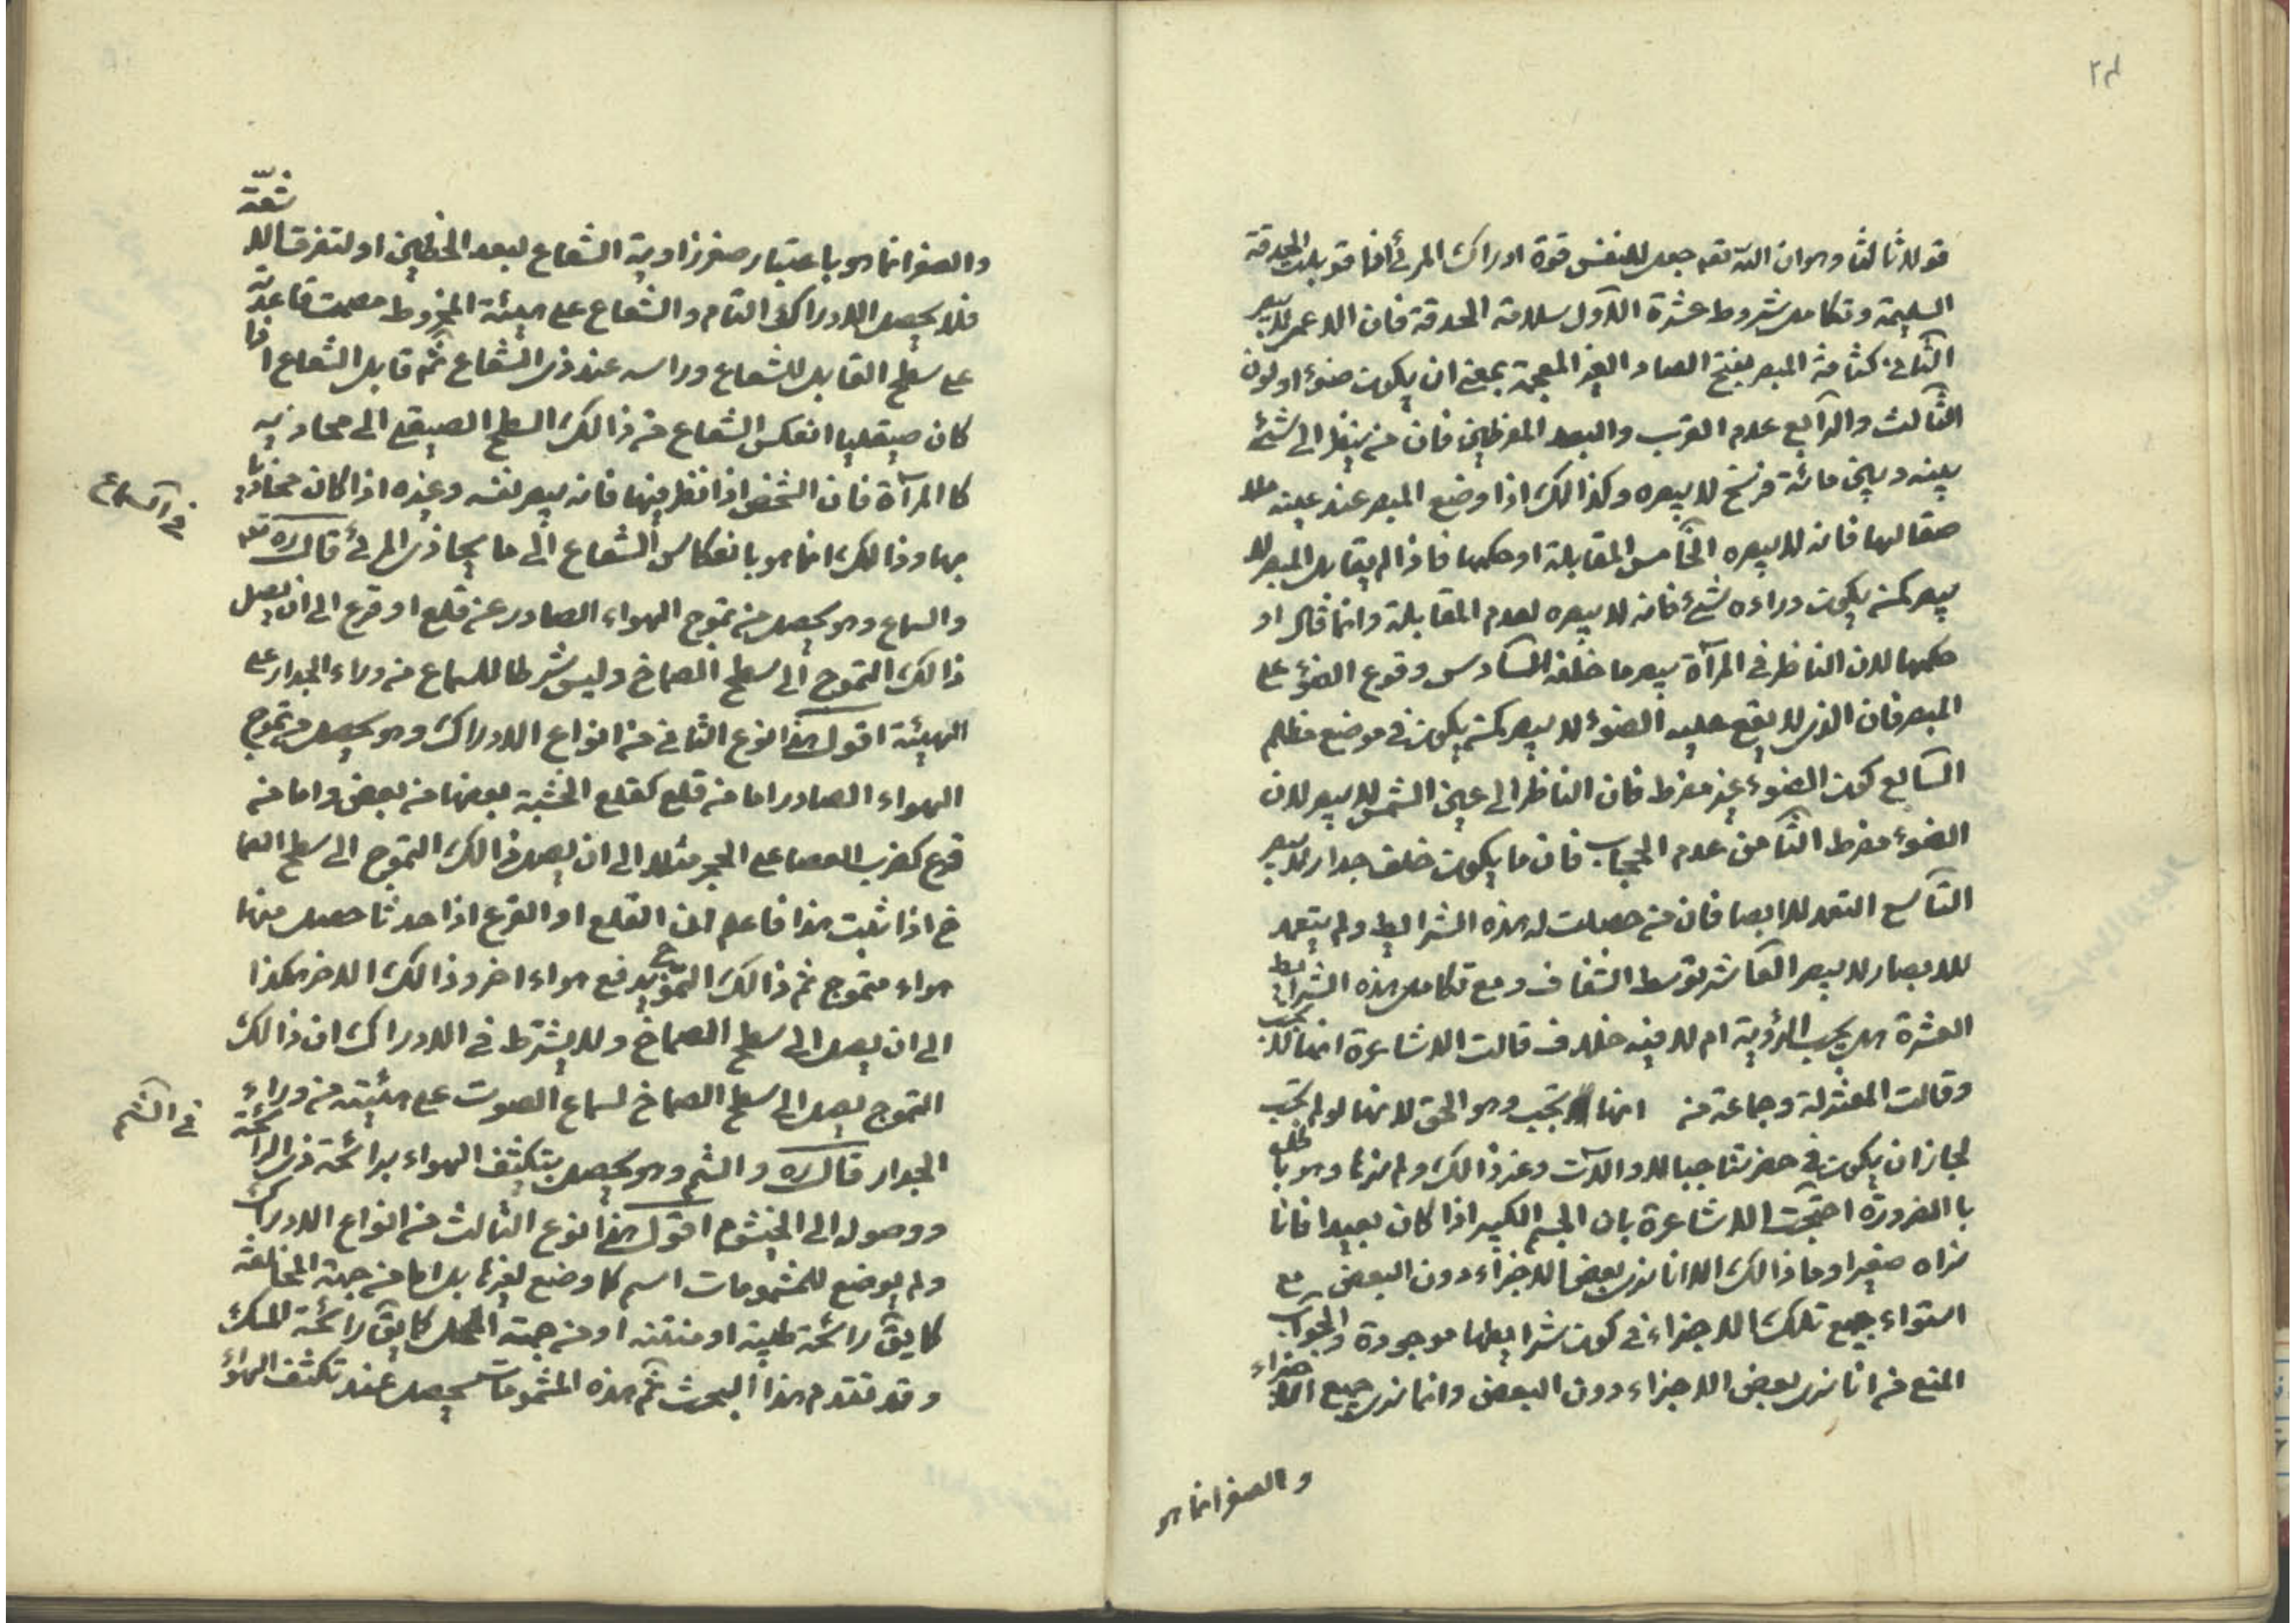 ٢٤
قولا ثالثا وهو ان الله تعه جعل للنفس قوة ادراك المرئ اذا قوبلت الحدقة
السليمة وتكامل شروط عشرة الاول سلامة الحدقة فان الاعمى لا يبصر
الثانى كثافة المبصر بفتح الصاد الغير المعجمة بمعنى ان يكون ضوء او لون
الثالث والرابع عدم القرب والبعد المفرطين فان من ينظر الى شئ
بينه وبين مائة فرسخ لا يبصره وكذالك اذا وضع المبصر عند عينه
فانه لا يبصره الخامس المقابلة او حكمها فاذا لم يقابل المبصر لا
يبصر كمن يكون وراءه شئ فانه لا يبصره لعدم المقابلة وانما قال او
حكمها لان الناظر فى المرآة يبصر ما خلفه السادس وقوع الضوء على
المبصر فان الذى لا يقع عليه الضوء لا يبصر كمن يكون فى موضع مظلم
السابع كون الضوء غير مفرط فان الناظر الى عين الشمس لا يبصر لان
الضوء مفرط الثامن عدم الحجاب فان ما يكون خلف جدار لا يبصر
التاسع التعمد للابصا فان من حصلت له هذه الشرايط ولم يتعمد
للابصار لا يبصر العاشر توسط الشفاف ومع تكامل هذه الشرايط
العشرة هل يجب الرؤية ام لا فيه خلاف قالت الاشاعرة انها لا تجب
وقالت المعتزلة وجماعة من انها تجب وهو الحق لانها لو لم تجب
لجاز ان يكون فى حضرتنا جبالا والآت وغير ذالك ولم نرها وهو باطل
با الضرورة احتجت الاشاعرة بان الجسم الكبير اذا كان بعيدا فانا
نراه صغيرا وما ذالك الا انا نرى بعض الاجزاء دون البعض مع
استواء جميع تلك الاجزاء فى كون شرايطها موجودة والجواب
المنع من انا نرى بعض الاجزاء دون البعض وانما نرى جميع الاجزاء
والصغر انما هو
والصغر انما هو باعتبار صغر زاوية الشعاع لبعد الخطين او لتفرق الاشعة
فلا يحصل الادراك التام والشعاع على هيئة المخروط قاعدته
على سطح القابل للشعاع وراسه عند ذى الشعاع ثم قابل الشعاع اذا
كان صيقليا انعكس الشعاع من ذالك السطح الصيقلى الى محاذيه
كا المرآة فان الشخص اذا نظر فيها فانه يبصر نفسه وغيره اذا كان محاذيا
بها وذالك انما هو بانعكاس الشعاع الى ما يحاذى المرئ قال ره
فى السماع
والسماع وهو يحصل من تموج الهواء الصادر عن قلع او قرع الى ان يصل
ذالك التموج الى سطح الصماخ وليس شرطا للسماع من وراء الجدار على
الهيئة اقول هذا نوع الثانى من انواع الادراك وهو يحصل من تموج
الهواء الصادر اما من قلع كقلع الخشبة بعضها من بعض واما من
قرع كضرب العصا على الحجر مثلا الى ان يصل ذالك التموج الى سطح الصما
خ اذا ثبت هذا فاعلم ان القلع او القرع اذا حدثا حصل منها
هواء متموج ثم ذالك التموج يدفع هواء اخر وذالك الاخر هكذا
الى ان يصل الى سطح الصماخ ولا يشترط فى الادراك ان ذالك
التموج يصل الى سطح الصماخ لسماع الصوت على هيئته من وراء
فى الشم
الجدار قال ره والشم وهو يحصل بتكثف الهواء برائحة ذى الرائحة
ووصوله الى الخيشوم اقول هذا نوع الثالث من انواع الادراك
ولم يوضع للمشمومات اسم كما وضع لغيرها بل اما من جهة المخالفة
كما يق رائحة طيبة او منتنة او من جهة المحل كما يق رائحة المسك
وقد تقدم هذا البحث ثم هذه المشمومات يحصل عند تكثف الهواء